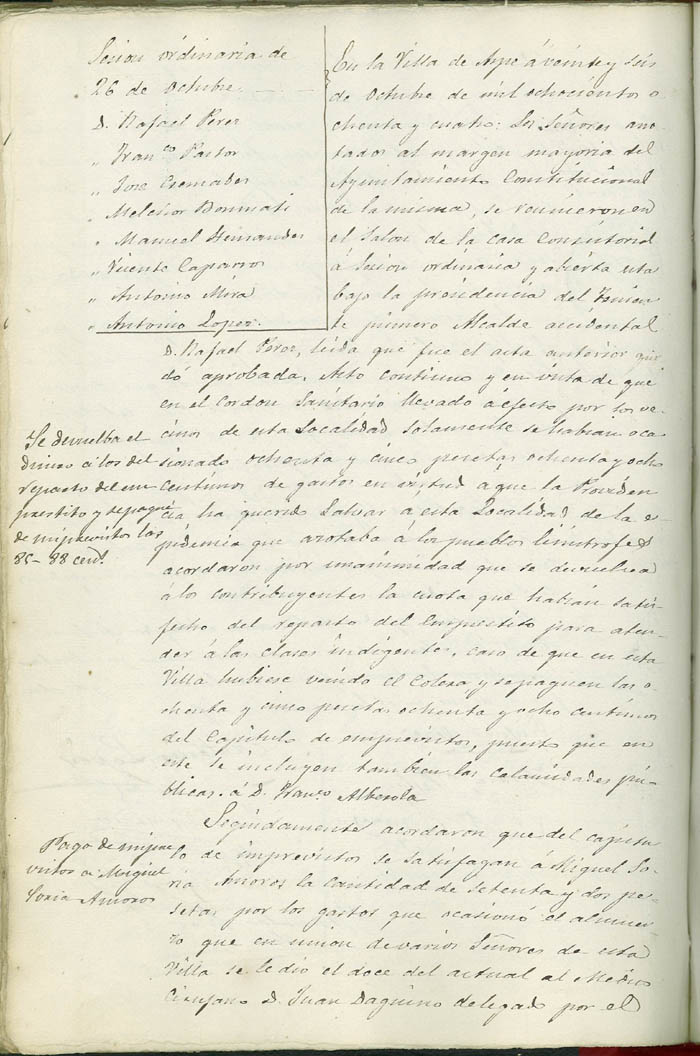 Sesion ordinaria de
26 de Octubre
D. Rafael Perez
" Fran.co Pastor
" Jose Cremades
" Melchor Bonmati
" Manuel Hernandez
" Vicente Caparros
" Antonio Mira
" Antonio Lopez.
En la Villa de Aspe á veinte y seis
de Octubre de mil ochocientos o
chenta y cuatro: Los Señores ano
tados al margen mayoria del
Ayuntamiento Constitucional
de la misma, se reunieron en
el Salon de la casa Consistorial
á Sesion ordinaria y abierta esta
bajo la presidencia del Tenien
te primero Alcalde accidental
D. Rafael Perez, leida que fue el acta anterior que
dó aprobada. Acto continuo y en vista de que
en el Cordon Sanitario llevado a efecto por los ve
cinos de esta Localidad, solamente se habian oca
sionado ochenta y cinco pesetas ochenta y ocho
centimos de gastos en virtud á que la Providen
cia ha querido Salvar á esta Localidad de la e
pidemia que azotaba á los pueblos limitrofes
acordaron por unanimidad que se devuelva
á los contribuyentes la cuota que habian satis
fecho del reparto del Emprestito para aten
der á las clases indigentes, caso de que en esta
Villa hubiese venido el Colera y se paguen las o
chenta y cinco pesetas ochenta y ocho centimos
del Capitulo de imprevistos, puesto que en
este se incluyen tambien las Calamidades pú
blicas. á D. Fran.co Alberola
Se devuelba el
dinero á los del
reparto del em
prestito y se pague
de imprevistos las
85-88 cent.
Seguidamente acordaron que del capitu
lo de imprevistos se satisfagan á Miguel So
ria Amoros la Cantidad de Setenta y dos pe
setas por los gastos que ocasionó el almuer
zo que en union de varios Señores de esta
Villa se le dió el doce del actual al Medico
Cirujano D. Juan Daguino delegado por el
Pago de impre
vistos á Miguel
Soria Amoros